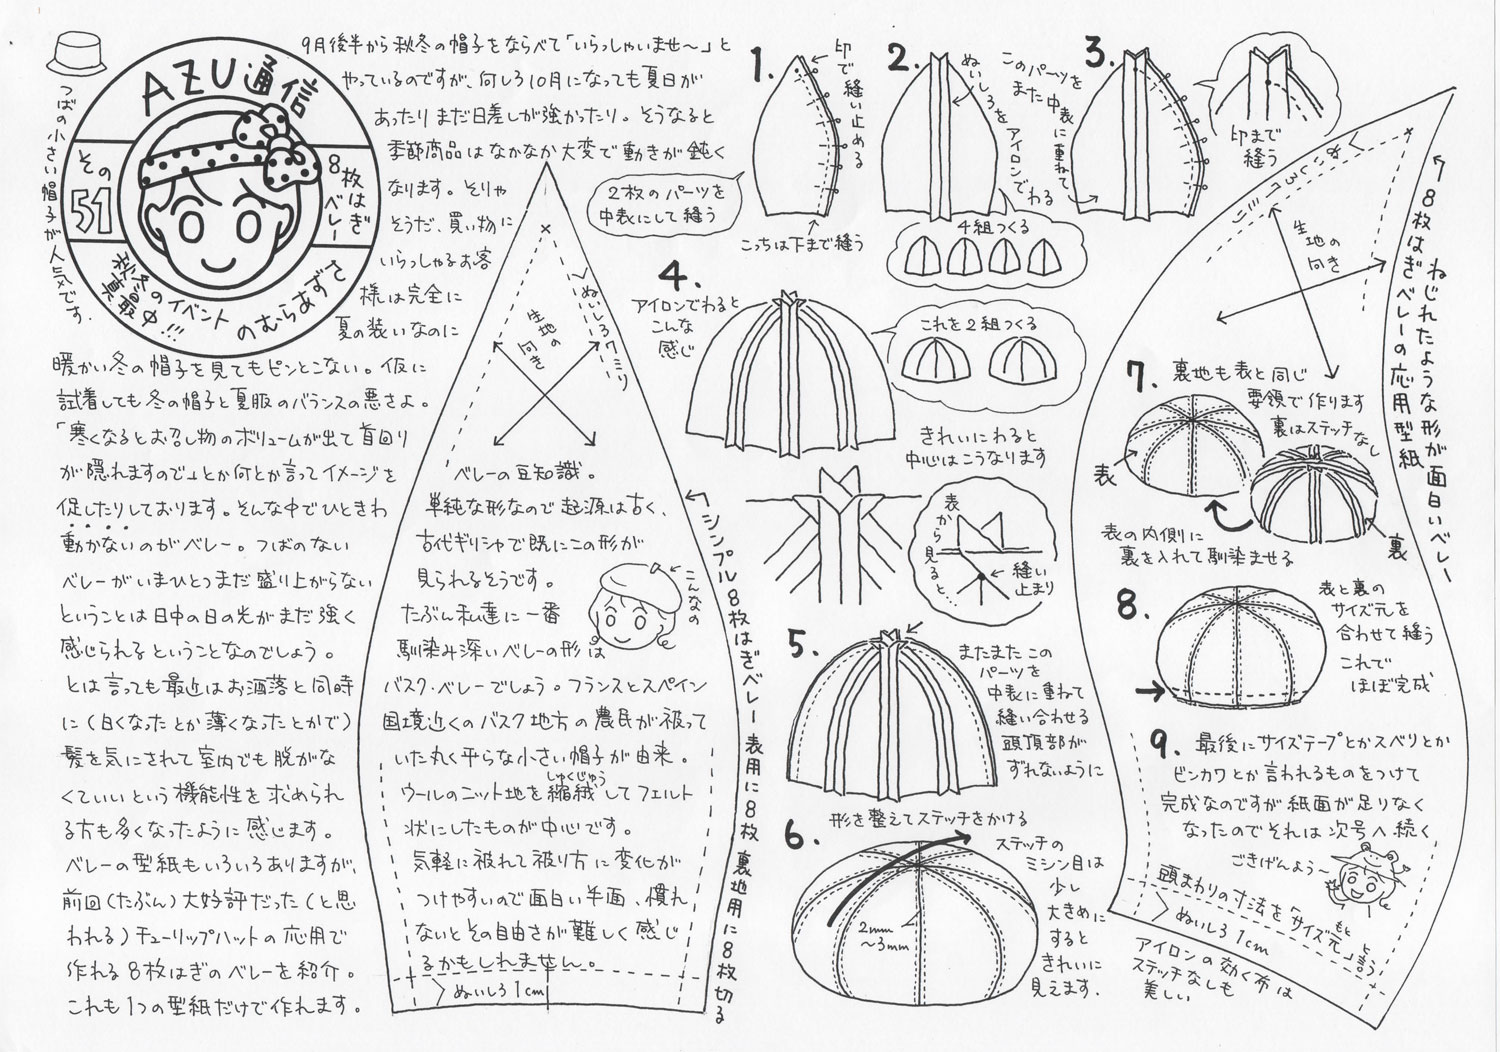 AZU通信
その
51
8枚はぎ
ベレー
秋冬のイベント
真最中!!!
のむらあずさ
つばの小さい帽子が人気です.
9月後半から秋冬の帽子をならべて「いらっしゃいませ〜」と
やっているのですが、何しろ10月になっても夏日が
あったりまだ日差しが強かったり。そうなると
季節商品はなかなか大変で動きが鈍く
なります。そりゃ
そうだ、買い物に
いらっしゃるお客
様は完全に
夏の装いなのに
暖かい冬の帽子を見てもピンとこない。仮に
試着しても冬の帽子と夏服のバランスの悪さよ。
「寒くなるとお召し物のボリュームが出て首回り
が隠れますので」とか何とか言ってイメージを
促したりしております。そんな中でひときわ
動かないのがベレー。つばのない
ベレーがいまひとつまだ盛り上がらない
ということは日中の日の光がまだ強く
感じられるということなのでしょう。
とは言っても最近はお洒落と同時
に(白くなったとか薄くなったとかで)
髪を気にされて室内でも脱がな
くていいという機能性を求められ
る方も多くなったように感じます。
ベレーの型紙もいろいろありますが、
前回(たぶん)大好評だった(と思
われる)チューリップハットの応用で
作れる8枚はぎのベレーを紹介。
これも1つの型紙だけで作れます.
ぬいしろ7ミリ
生地の
向き
ベレーの豆知識。
単純な形なので起源は古く、
古代ギリシャで既にこの形が
見られるそうです。
たぶん私達に一番
馴染み深いベレーの形は
バスク・ベレーでしょう。フランスとスペイン
国境近くのバスク地方の農民が被って
いた丸く平らな小さい帽子が由来。
しゅくじゅう
ウールのニット地を縮絨してフェルト
状にしたものが中心です。
気軽に被れて被り方に変化が
つけやすいので面白い半面、慣れ
ないとその自由さが難しく感じ
るかもしれません。
ぬいしろ1cm
こんなの
シンプル8枚はぎベレー 表用に8枚 裏地用に8枚切る
1.
印で縫い止める
2枚のパーツを
中表にして縫う
こっちは下まで縫う
2.
ぬいしろをアイロンでわる
4組つくる
3.
このパーツを
また中表に重ねて
印まで
縫う
4.
アイロンでわると
こんな
感じ
これを2組つくる
きれいにわると
中心はこうなります
表から見ると…
縫い
止まり
5.
またまたこの
パーツを
中表に重ねて
縫い合わせる
頭頂部が
ずれないように
6.
形を整えてステッチをかける
2mm
〜3mm
ステッチの
ミシン目は
少し
大きめに
すると
きれいに
見えます.
7.
裏地も表と同じ
要領で作ります
裏はステッチなし
表
裏
表の内側に
裏を入れて馴染ませる
8.
表と裏の
サイズ元を
合わせて縫う
これで
ほぼ完成
9.
最後にサイズテープとかスベリとか
ビンカワとか言われるものをつけて
完成なのですが紙面が足りなく
なったのでそれは次号へ続く
ごきげんよう〜
ぬいしろ7ミリ
生地の
向き
ねじれたような形が面白いベレー
8枚はぎベレーの応用型紙
頭まわりの寸法を「サイズ元」と言う
もと
ぬいしろ1cm
アイロンの効く布は
ステッチなしも
美しい